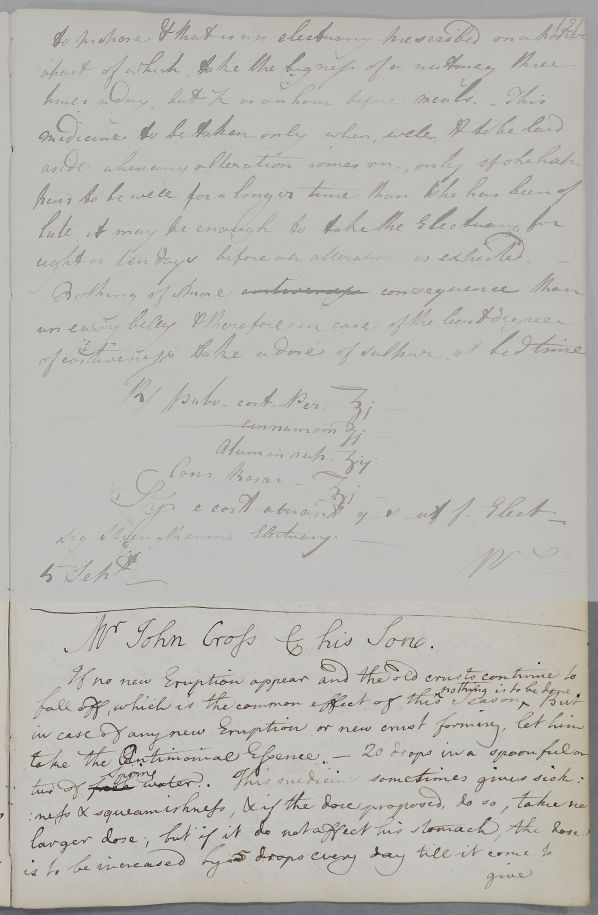 to propose & that is in electuary prescribed on a paper
apart of which, take the bigness of a nutmeg three
times a day, but ½ or an hour before meals. - This
medicine to be taken only when well, & to be laid
aside when any alteration comes on, only if she hap
pens to be well for a longer time than she has been of
late it may be enough to take the Electuary for
eight or ten days before an alteration is expected. -
Nothing of more costiveness consequence than
an easy belly & therefore in case of the least degree
of costiveness take a dose of sulphur at bed time
R/ pulv. cort. Per. ℥j
cinnamom ʒj
Alumin rup. ʒij
Cons Rosar - ℥j
Syr e cort aurant q. s. ut f. Elect
sig Strengthening Electuary.
5 Septr
Mr John Cross & his Sone.
If no new Eruption appear and the old crusts continue to
fall off, which is the common effect of this Season, nothing is to be done But
in case of any new Eruption or new crust forming, let him
take the Antimonial Essence. - 20 drops in a spoonful or
two of spring water. This medicine sometimes gives sick:
:ness & squeamishness, & if the dose proposed, do so, take no
larger dose; but if it do not affect his stomach, the dose
is to be increased by 5 drops every day till it come to
give